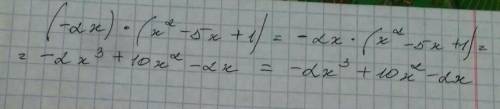 (-2x) · (x² - 5x + 1) = -2x · (x² - 5x + 1) =
= -2x³ + 10x² - 2x = -2x³ + 10x² - 2x